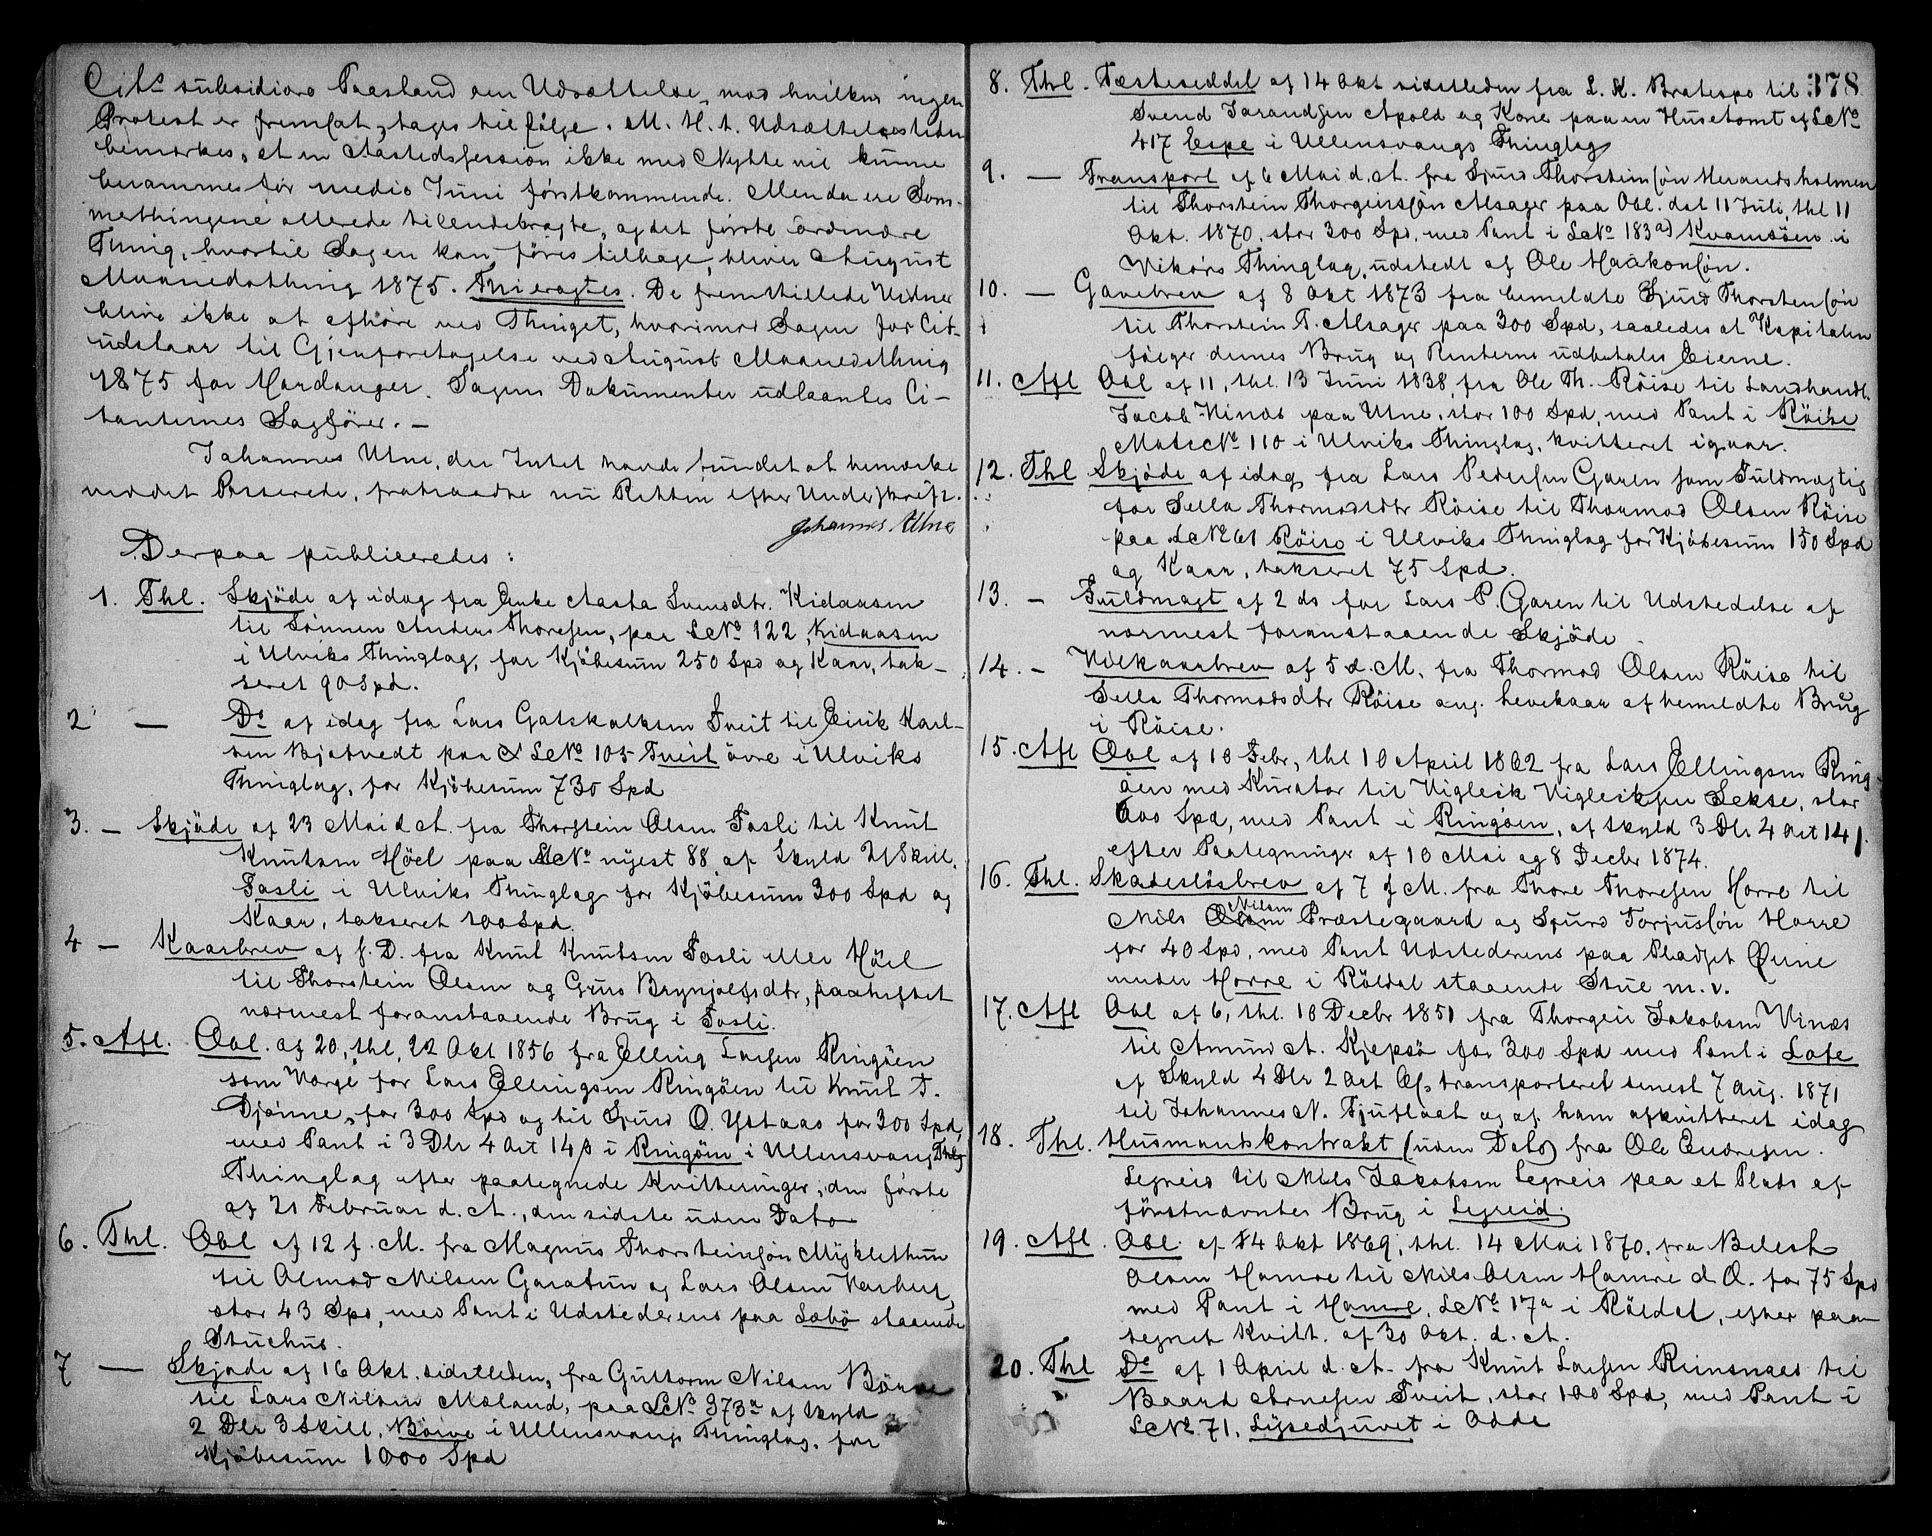 Cits subsidiære Paastand om Udsættelse, mod hvilken ingen
Protest er fremsat, tages til følge. M. H. t. Udsættelsestiden
bemærkes, at en Aastedssession ikke med Nytte vil kunne
berammes før medio Juni førstkommende. Men da ere Som-
merthingene allerede tilendebragte, og det første ordinære
Thing, hvortil Sagen kan føres tilbage, bliver August
Maanedsthing 1875. Thi eragtes. De fremstillede Vidner
blive ikke at afhøre ved Thinget, hvorimod Sagen for Cit.
udstaar til Gjenforetagelse ved August Maanedsthing
1875 for Hardanger. Sagens Dokumenter udlaantes Ci-
tanternes Sagfører. —
Johannes Utne, der Intet havde fundet at bemærke
ved det Passerede, fratraadte nu Retten efter Underskrift.
Johannes Utne
Derpaa publiceredes:
1. Thl. Skjøde af idag fra Enke Aasta Svensdtr. Kidaasen
til Sønnen Anders Thoresen, paa LNo 122, Kidaasen
i Ulviks Thinglag, for Kjøbesum 250 Spd og Kaar, tak-
seret 90 Spd.
2 — Do af idag fra Lars Gatskalksen Tveit til Eirik Karl-
sen Bjotvedt paa LNo 105 Tveit øvre i Ulviks
Thinglag, for Kjøbesum 730 Spd
3. — Skjøde af 23 Mai d. A. fra Thorstein Olsen Fosli til Knut
Knutsen Høel paa LNo nyest 88 af Skyld 21 Skill.
Fosli i Ulviks Thinglag for Kjøbesum 300 Spd og
Kaar, takseret 100 Spd.
4 — Kaarbrev af s. D. fra Knut Knutsen Fosli eller Høel
til Thorstein Olsen og Guro Brynjolfsdtr, paaheftet
nærmest foranstaaende Brug i Fosli.
5. Afl. Obl. af 20, thl, 22 Okt 1856 fra Elling Larsen Ringøen
som Værge for Lars Ellingsen Ringøen til Knut T.
Djønne, for 300 Spd og til Sjurd O. Ystaas for 300 Spd,
med Pant i 3 Dlr 4 Ort 14 ß i Ringøen i Ullensvang Thlg
Thinglag efter paategnede Kvitteringer, den første
af 21 Februar d. A., den sidste uden Dato
6. Thl. Obl af 12 f. M. fra Magnus Thorsteinsøn Myklethun
til Olmod Nilsen Garatun og Lars Olsen Varberg
stor 43 Spd, med Pant i Udstederens paa Sæbø staaende
Stuehus.
7 — Skjøde af 16 Okt. sidstleden, fra Guttorm Nilsen Børve
til Lars Nilsen Mæland, paa LNo 373a af Skyld
2 Dlr 3 Skill. Børve i Ullensvangs Thinglag. for
Kjøbesum 1000 Spd
378
8. Thl. Fæsteseddel af 14 Okt sidstleden fra L. K. Bratespe til
Svend Jarandsen Apold og Kone paa en Husetomt af LNo
417 Espe i Ullensvangs Thinglag
9. — Transport af 6 Mai d. A. fra Sjurd Thorsteinsøn Herandsholmen
til Thorstein Thorgeirsøn Alsager paa Obl. dat 11 Juli, thl 11
Okt. 1870, stor 300 Spd. med Pant i LNo 183a) Kvamsøen i
Vikørs Thinglag, udstedt af Ole Haakonsøn.
10. — Gavebrev af 8 Okt 1873 fra bemeldte Sjurd Thorsteinsøn
til Thorstein T. Alsager paa 300 Spd, saaledes at Kapitalen
følger dennes Brug og Renterne udbetales Eierne.
11. Afl Obl af 11, thl. 13 Juni 1838 fra Ole Th. Røise til Landhandl.
Jacob Vinæs paa Utne, stor 100 Spd, med Pant i Røise
Mats No 110 i Ulviks Thinglag, kvitteret igaar.
12. Thl Skjøde af idag fra Lars Pedersen Garen som Fuldmægtig
for Sella Thormodsdtr Røise til Thormod Olsen Røise
paa LNo 61 Røise i Ulviks Thinglag for Kjøbesum 150 Spd
og Kaar, takseret 75 Spd.
13. — Fuldmagt af 2 ds for Lars P. Garen til Udstedelse af
nærmest foranstaaende Skjøde
14. — Vilkaarbrev af 5 d. M. fra Thormod Olsen Røise til
Sella Thormodsdtr Røise ang. Levekaar af bemeldte Brug
i Røise.
15. Afl Obl af 10 Febr, thl 10 April 1862 fra Lars Ellingsen Ring-
øen med Kurator til Vigleik Vigleiksen Sekse, stor
600 Spd, med Pant i Ringøen, af Skyld 3 Dlr 4 Ort 14 ß.
efter Paategninger af 10 Mai og 8 Decbr 1874.
16. Thl. Skadesløsbrev af 7 f M. fra Thore Thoresen Horre til
Nils Olsen Nilsen Præstegaard og Sjurd Torjussøn Horre
for 40 Spd, med Pant Udstederens paa Pladset Øvne
under Horre i Røldal staaende Stue m. v.
17. Afl Obl af 6, thl. 10 Decbr 1851 fra Thorgeir Jakobsen Vinæs
til Amund A. Kjepsø for 300 Spd med Pant i Lote
af Skyld 4 Dlr 2 Ort transporteret senest 7 Aug. 1871
til Johannes N. Tjuflaat og af ham afkvitteret idag
18. Thl. Husmandskontrakt (uden Dato) fra Ole Endresen
Legreid til Nils Jacobsen Legreid paa et Plads af
førstnævntes Brug i Legreid.
19. Afl. Obl. af 14 Okt 1869, thl. 14 Mai 1870. fra Belest
Olsen Hamre til Nils Olsen Hamre d. O. for 75 Spd
med Pant i Hamre. LNo 17a i Røldal, efter paa-
tegnet Kvitt. af 30 Okt. d. A.
20. Thl Do af 1 April d. A. fra Knut Larsen Reinsnaas til
Baard Arnesen Tveit, stor 100 Spd, med Pant i
LNo 71, Lysedjuvet i Odde